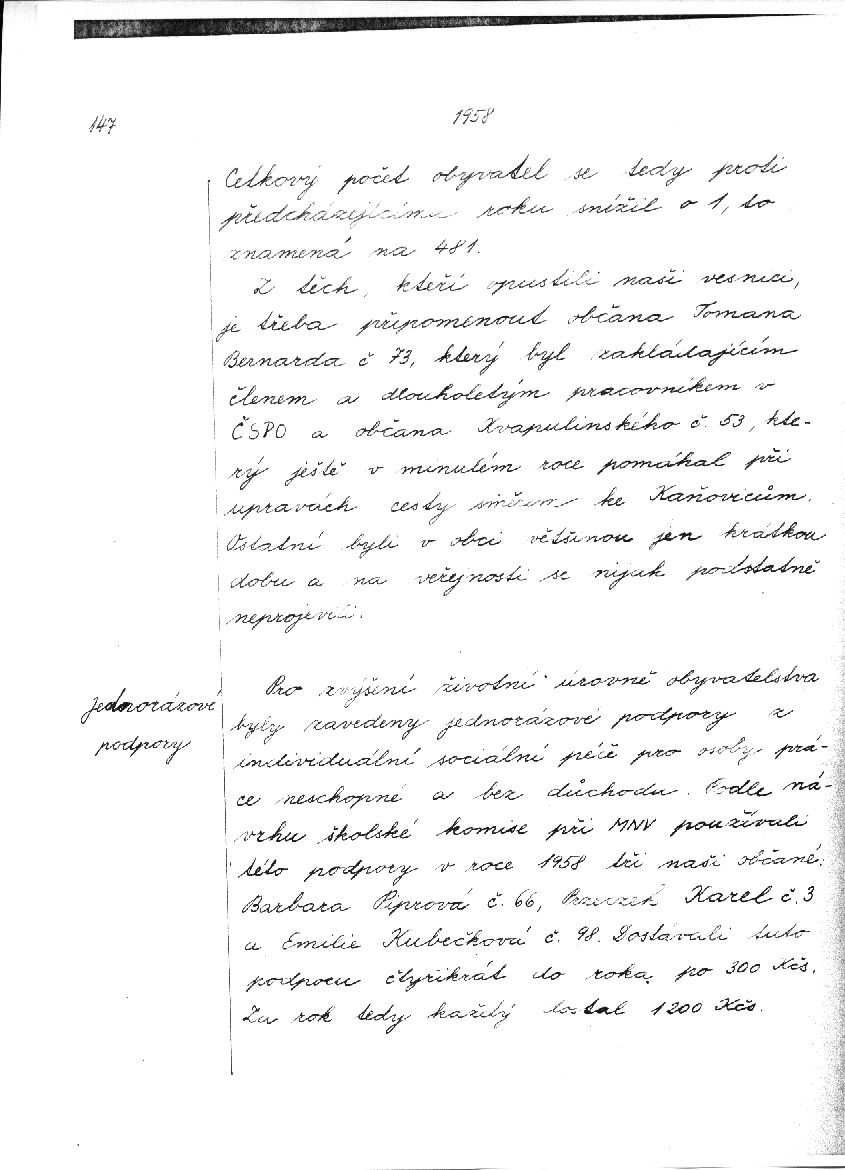 147
1958
Celkový počet obyvatel se tedy proti
předcházejícímu roku snížil o 1, to
znamená na 481.
Z těch, kteří opustili naši vesnici,
je třeba připomenout občana Tomana
Bernarda č 73, který byl zakládajícím
členem a dlouholetým pracovníkem v
ČSPO a občana Kvapulinského č. 53, kte-
rý ještě v minulém roce pomáhal při
upravách cesty směrem ke Kaňovicům.
Ostatní byli v obci většinou jen krátkou
dobu a na veřejnosti se nijak podstatně
neprojevili.
Jednorázové
podpory
Pro zvýšení životní úrovně obyvatelstva
byly zavedeny jednorázové podpory z
individuální sociální péče pro osoby prá-
ce neschopné a bez důchodu. Podle ná-
vrhu školské komise při MNV používali
této podpory v roce 1958 tři naši občané:
Barbara Piprová č. 66, Przeczek Karel č. 3
a Emilie Kubečková č. 98. Dostávali tuto
podporu čtyřikrát do roka po 300 Kčs.
Za rok tedy každý dostal 1200 Kčs.